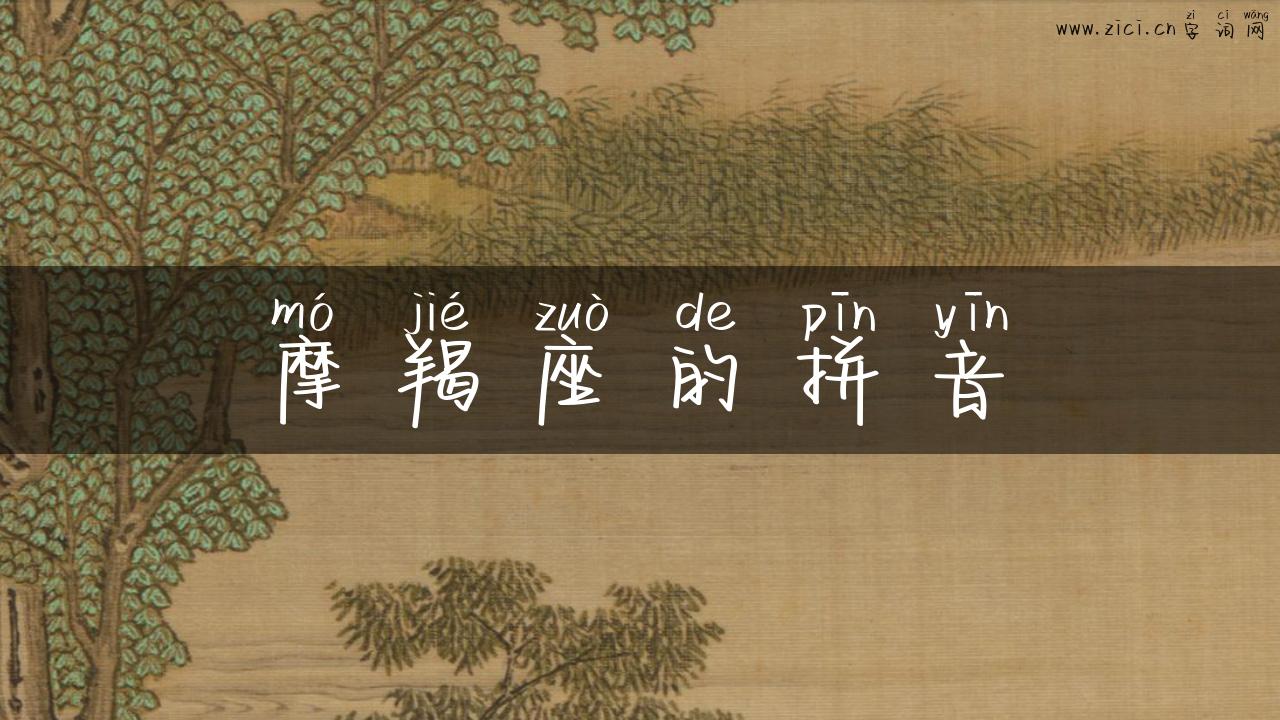 zì cí wǎng
www.zici.cn字词网
mó jié zuò de pīn yīn
摩羯座的拼音